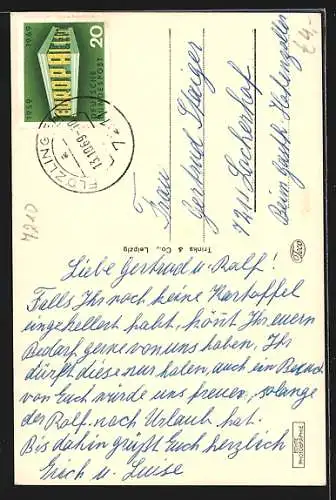 1959 1969
EUROPA CEPT
DEUTSCHE BUNDESPOST
20
FLÖZLING
13.10.69-10
7210
Frau
Gertrud Staiger
7211 Lackerhof
Beim Gasth. Hohenzollern
Trinks & Co., Leipzig
Trico
Liebe Gertrud u. Ralf!
Falls Ihr noch keine Kartoffel
eingekellert habt, könnt Ihr euern
Bedarf gerne von uns haben. Ihr
dürft diese nur holen, auch ein Besuch
von Euch würde uns freuen, solange
der Rolf noch Urlaub hat.
Bis dahin grüßt Euch herzlich
Erich u. Luise
ECHTE
PHOTOGRAPHIE